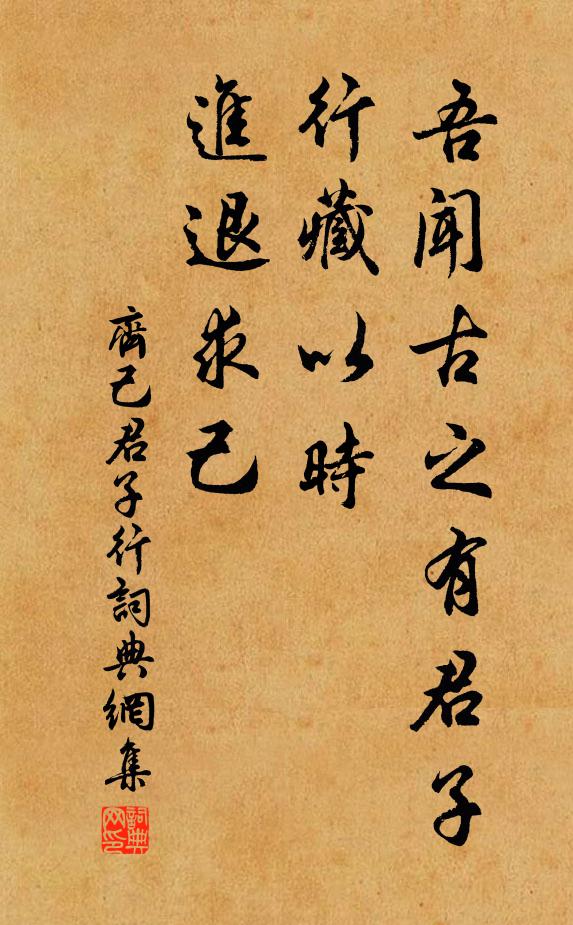 吾聞古之有君子
行藏以時
進退求己
齊己君子行詞典網集
詞典网印